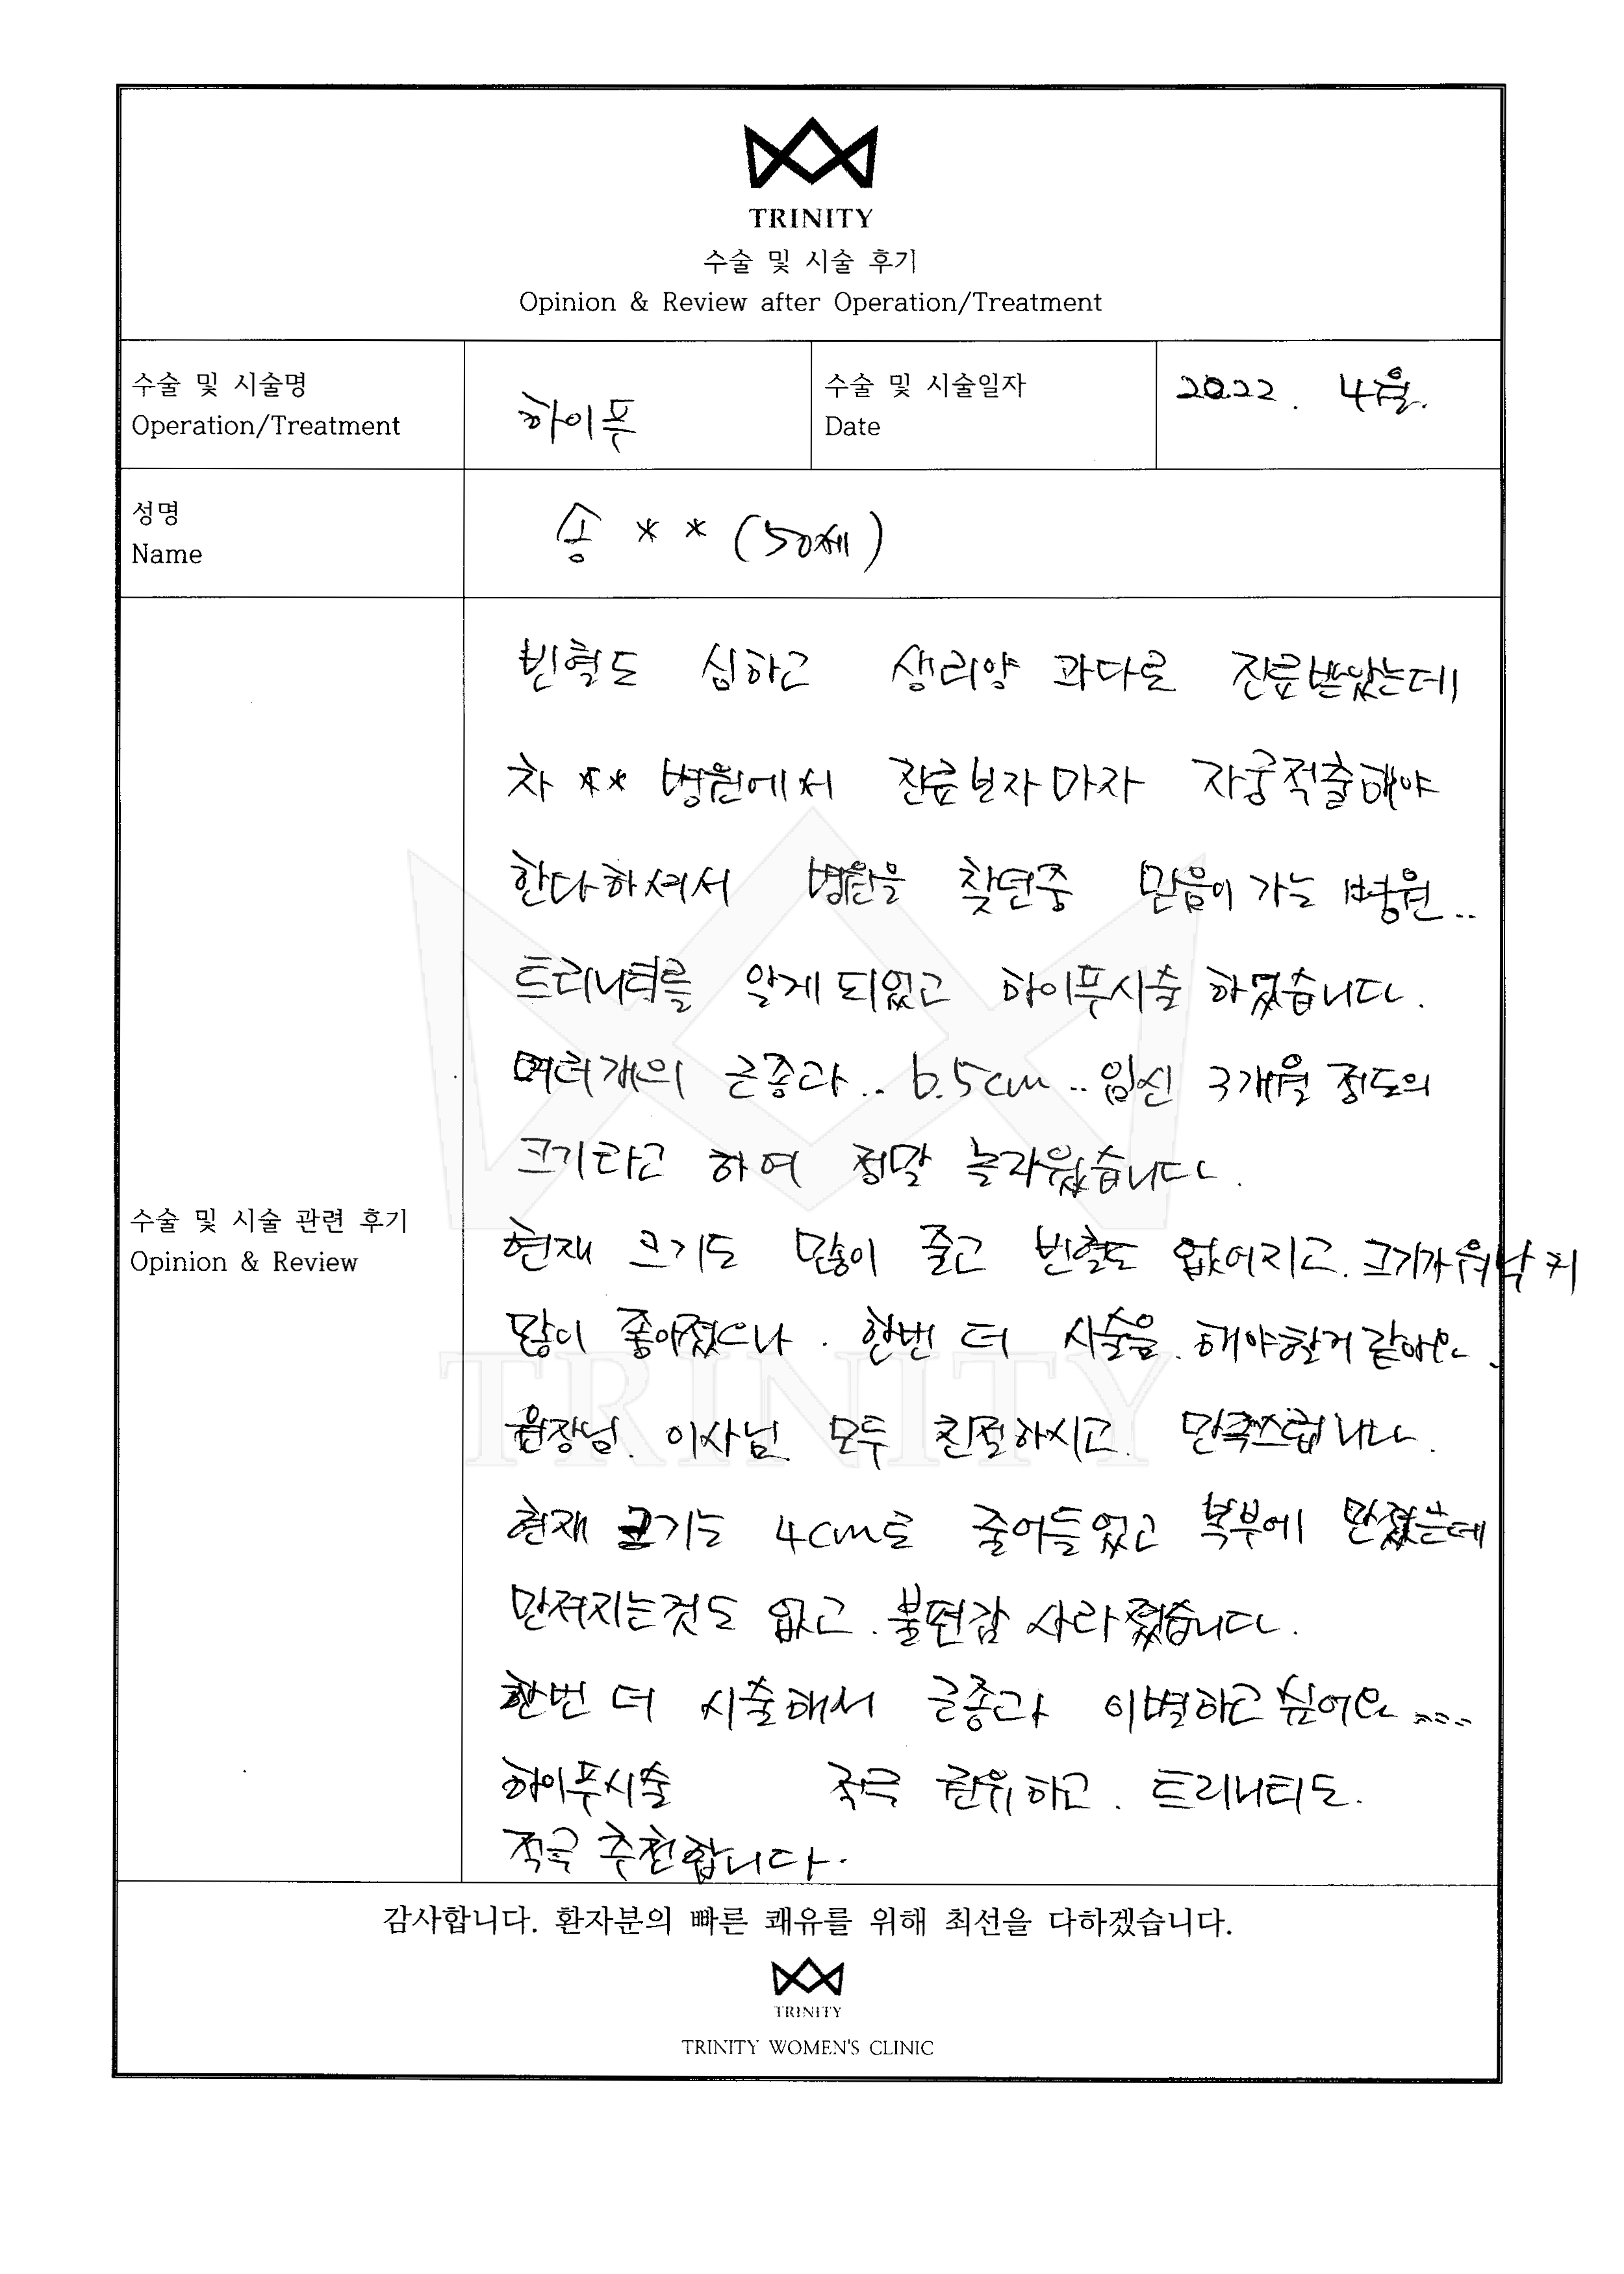 TRINITY
수술 및 시술 후기
Opinion & Review after Operation/Treatment
수술 및 시술명
Operation/Treatment
하이푸
수술 및 시술일자
Date
2022. 4월.
성명
Name
송 * * (50세)
수술 및 시술 관련 후기
Opinion & Review
빈혈도 심하고 생리양 과다로 진료받았는데
차 ** 병원에서 진료보자마자 자궁적출해야
한다하셔서 병원을 찾던중 믿음이 가는 병원..
트리니티를 알게 되었고 하이푸시술 하였습니다.
여러개의 근종과.. 6.5cm.. 임신 3개월 정도의
크기라고 하여 정말 놀라웠습니다.
현재 크기도 많이 줄고 빈혈도 없어지고. 크기가 워낙 커
많이 좋아졌으나. 한번 더 시술을. 해야할거 같아요.
원장님. 이사님 모두 친절하시고. 만족스럽니다.
현재 크기는 4cm로 줄어들었고 복부에 만졌는데
만져지는것도 없고. 불편감 사라졌습니다.
한번 더 시술해서 근종과 이별하고 싶어요....
하이푸시술 적극 권유하고. 트리니티도.
적극 추천합니다.
감사합니다. 환자분의 빠른 쾌유를 위해 최선을 다하겠습니다.
TRINITY
TRINITY WOMEN'S CLINIC
TRINITY